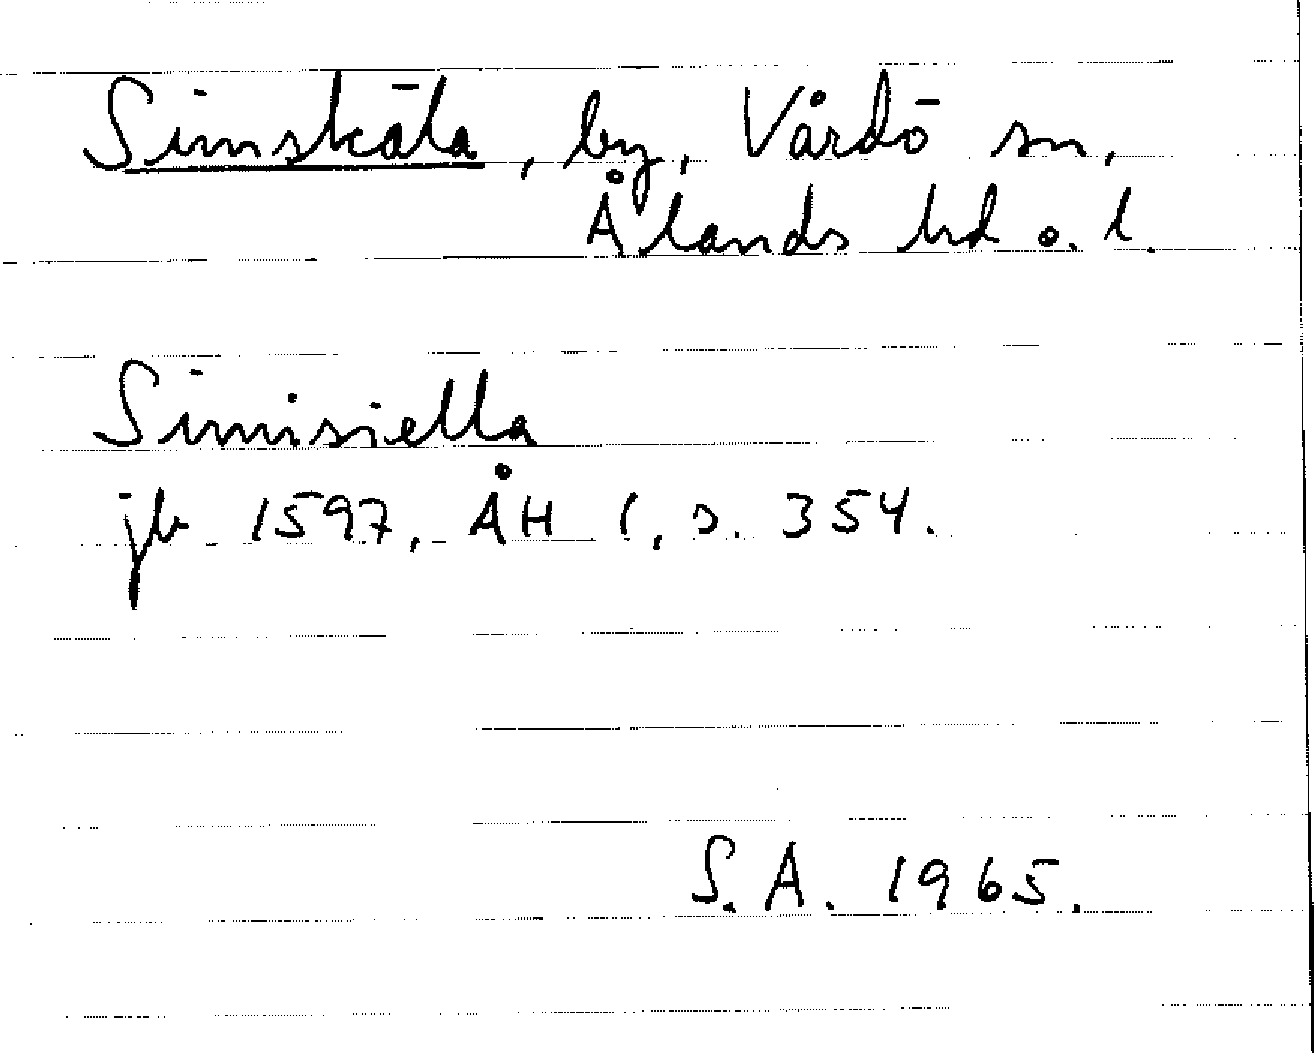 Simskäla, by, Vårdö sn,
Ålands hd o. l.
Simisiella
jb 1597, ÅH 1, s. 354.
S.A. 1965.